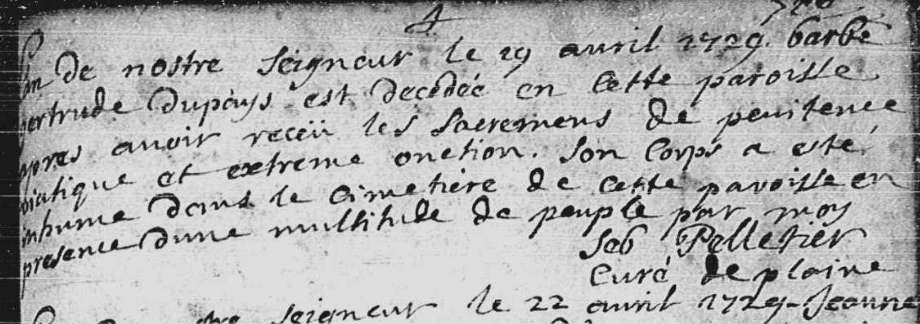 4
Lan de nostre Seigneur le 19 avril 1729. barbe
gertrude Dupays est decedée en cette paroisse
apres avoir receü les sacremens de penitence
viatique et extreme onction. son corps a esté
inhumé dans le cimetiére de cette paroisse en
presence dune multitude de peuple par moy
seb Pelletier
Curé de plaine
seigneur le 22 avril 1729 - Jeanne